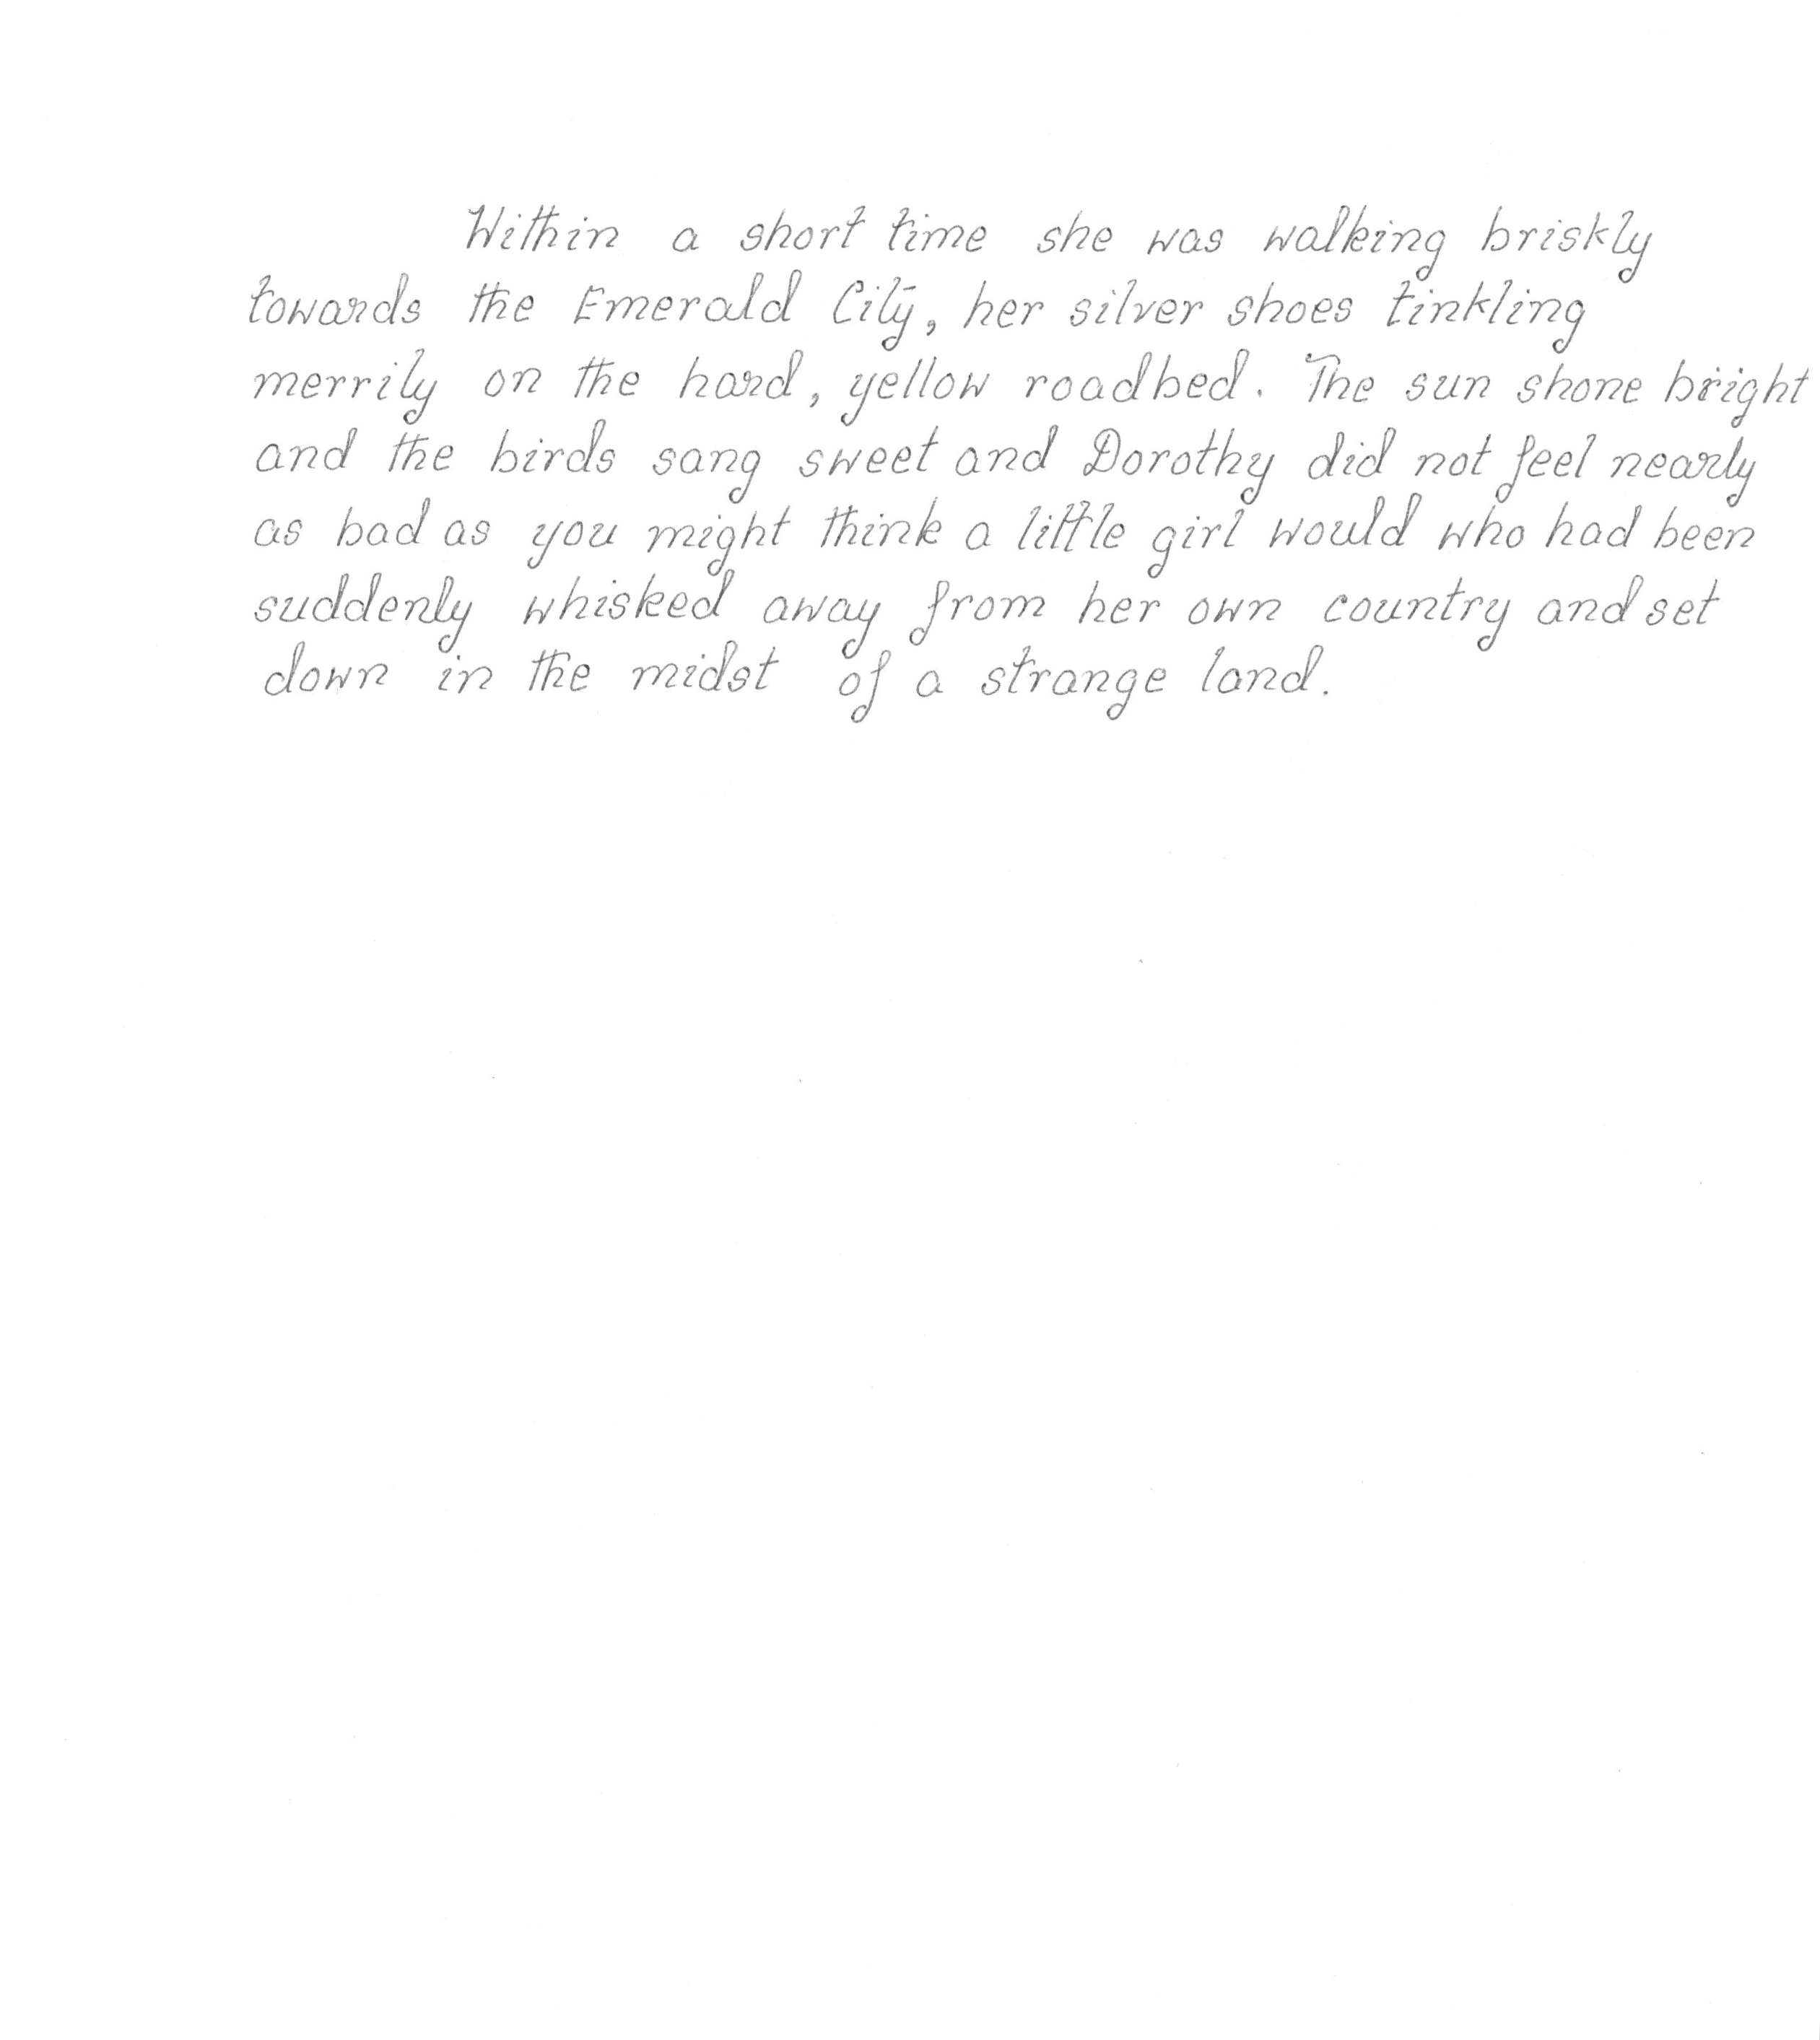 Within a short time she was walking briskly
towards the Emerald City, her silver shoes tinkling
merrily on the hard, yellow roadbed. The sun shone bright
and the birds sang sweet and Dorothy did not feel nearly
as bad as you might think a little girl would who had been
suddenly whisked away from her own country and set
down in the midst of a strange land.